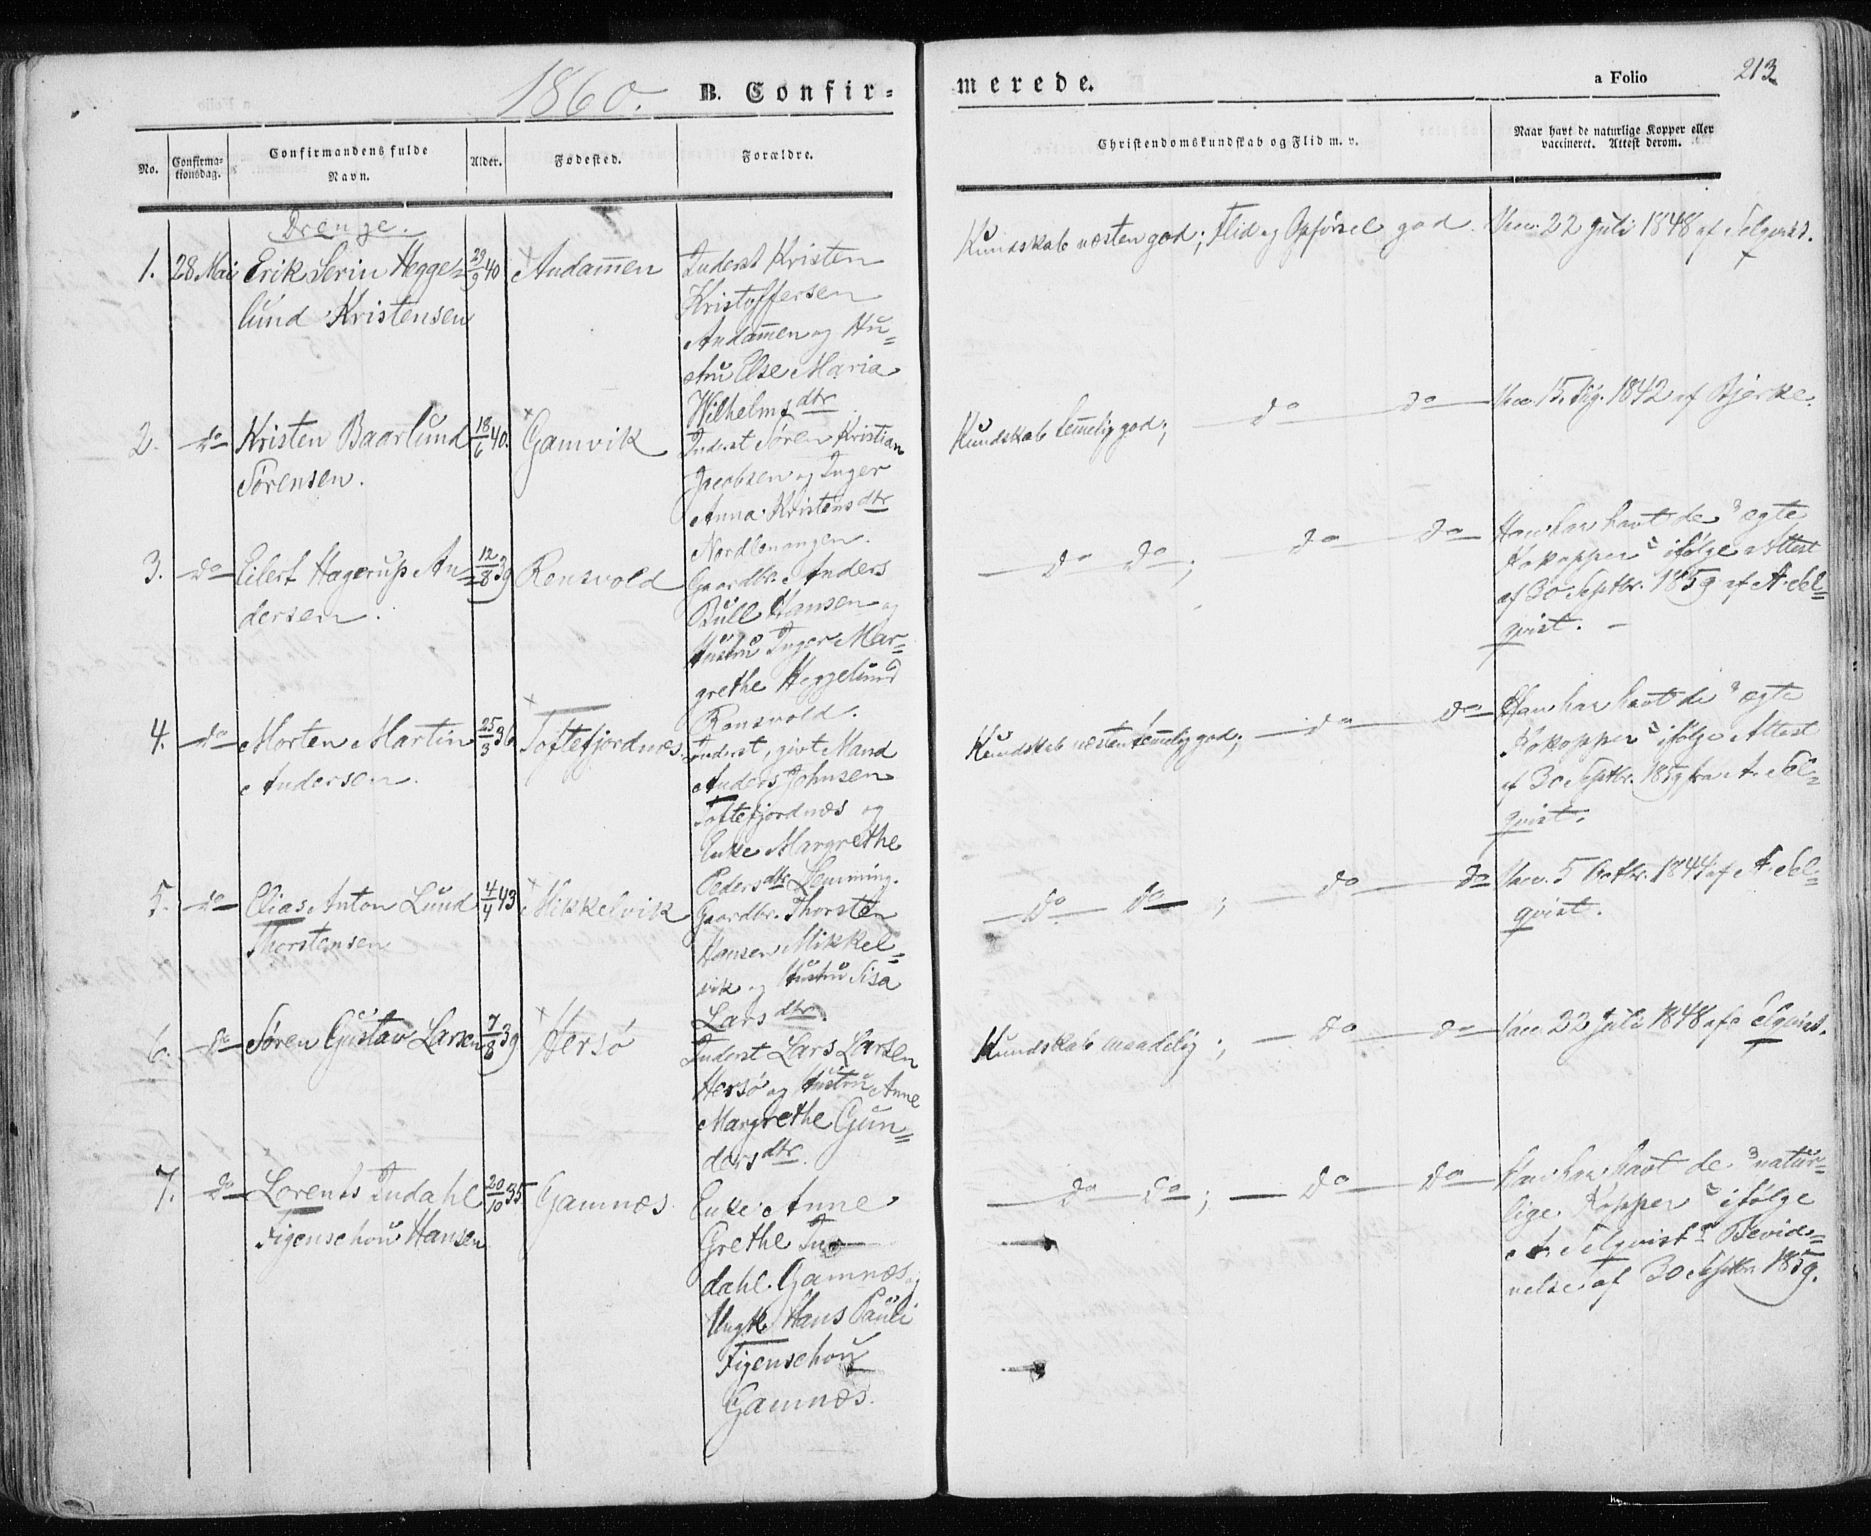 1860.
B. Confir-
merede.
a Folio
213
No.
Confirma-
tionsdag.
Confirmandens fulde
Navn.
Alder.
Fødested.
Forældre.
Christendomskundskab og Flid m. v.
Naar havt de naturlige Kopper eller
vaccineret. Attest derom.
Drenge.
1. 28 Mai Erik Serin Hegge= 29/9 40 Andammen Inderst Kristen
lund Kristensen
Kristoffersen
Andammen og Hu=
stru Else Maria
Wilhelmsdtr
Kundskab næsten god; Flid og Opførsel god. Vacc. 22 Juli 1848 af Selqvist.
2. do Kristen Baarlund 18/6 40. Gamvik Inderst Søren Kristian
Sørensen.
Jacobsen og Inger
Anna Kristensdtr
Nordlenangen.
Kundskab temmelig god; do do Vacc. 15. 1842 af Bjerke.
3. do Eilert Hagerup An= 12/8 39 Rensvold Gaardbr. Anders
dersen.
Bull Hansen og
Hustru Inger Mar=
grethe Heggelund
Rensvold.
do do; do do Han har havt de "ægte
Kokopper" ifølge Attest
af 30 Septbr. 1859 af A. Sel=
qvist.
4. do Morten Martin 25/3 36 Toftefjordnæs Inderst, givt Mand
Andersen.
Anders Johnsen
Toftefjordnæs og
Enke Margrethe
Pedersdtr Lemming.
Kundskab næsten temmelig god; do do Han har havt de "ægte
Kokopper" ifølge Attest
af 30 Septbr. 1859 fra A. Sel=
qvist.
5. do Elias Anton Lund 4/4 43 Mikkelvik Gaardbr. Thorsten
Thorstensen
Hansen Mikkel=
vik og Hustru Sisa
Larsdtr.
do do; do do Vacc. 5 Octbr. 1844 af A. Sel=
qvist.
6. do Søren Gustav Larsen 7/8 39 Hersø Inderst Lars Larsen
Hersø og Hustru Anne
Margrethe Gun=
dersdtr.
Kundskab maadelig; do do Vacc 22 Juli 1848 af Selqvist.
7. do Lorents Indahl 20/10 35 Gamnæs. Enke Anne
Figenschou Hansen
Grethe In=
dahl Gamnæs og
Ungk. Hans Pauli
Figenschou
Gamnæs.
do do; do do Han har havt de "natur=
lige Kopper" ifølge
A. Selqvists Bevid=
nelse af 30 Septbr 1859.